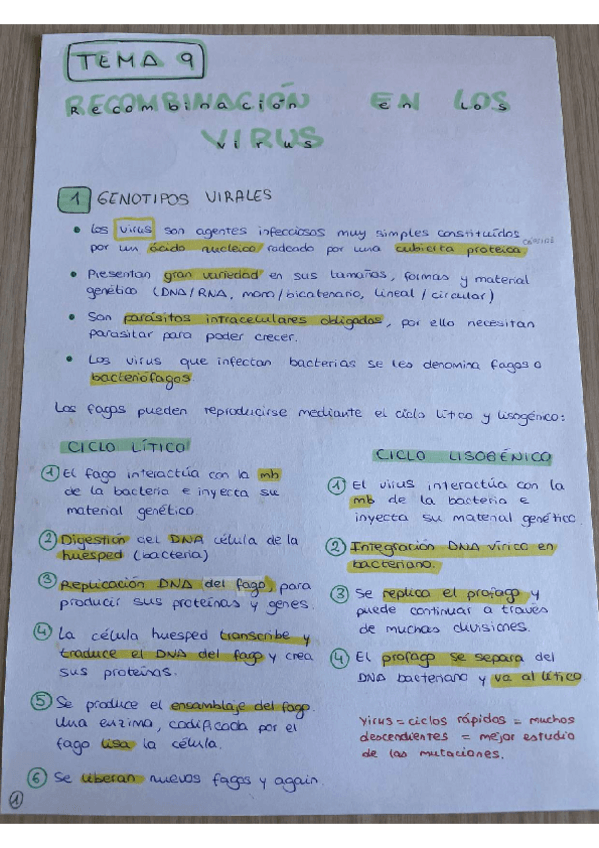 TEMA 9
RECOMBINACIÓN EN LOS
VIRUS
1 GENOTIPOS VIRALES
• Los virus son agentes infecciosos muy simples constituídos
por un ácido nucleico rodeado por una cubierta proteica
• Presentan gran variedad en sus tamaños, formas y material
genético (DNA/RNA, mono/bicatenario, lineal / circular)
• Son parásitos intracelulares obligados, por ello necesitan
parasitar para poder crecer.
• Los virus que infectan bacterias se les denomina fagos o
bacteriófagos.
Los fagos pueden reproducirse mediante el ciclo lítico y lisogénico:
CICLO LÍTICO
1 El fago interactúa con la mb
de la bacteria e inyecta su
material genético.
2 Digestión del DNA célula de la
huesped (bacteria)
3 Replicación DNA del fago, para
producir sus proteínas y genes.
4 La célula huesped transcribe y
traduce el DNA del fago y crea
sus proteínas.
5 Se produce el ensamblaje del fago.
Una enzima, codificada por el
fago lisa la célula.
6 Se liberan nuevos fagos y again.
CICLO LISOGÉNICO
1 El virus interactúa con la
mb de la bacteria e
inyecta su material genético.
2 Integración DNA vírico en
bacteriano.
3 Se replica el profago y
puede continuar a través
de muchas divisiones.
4 El profago se separa del
DNA bacteriano y va al lítico.
Virus = ciclos rápidos = muchos
descendientes = mejor estudio
de las mutaciones.
1